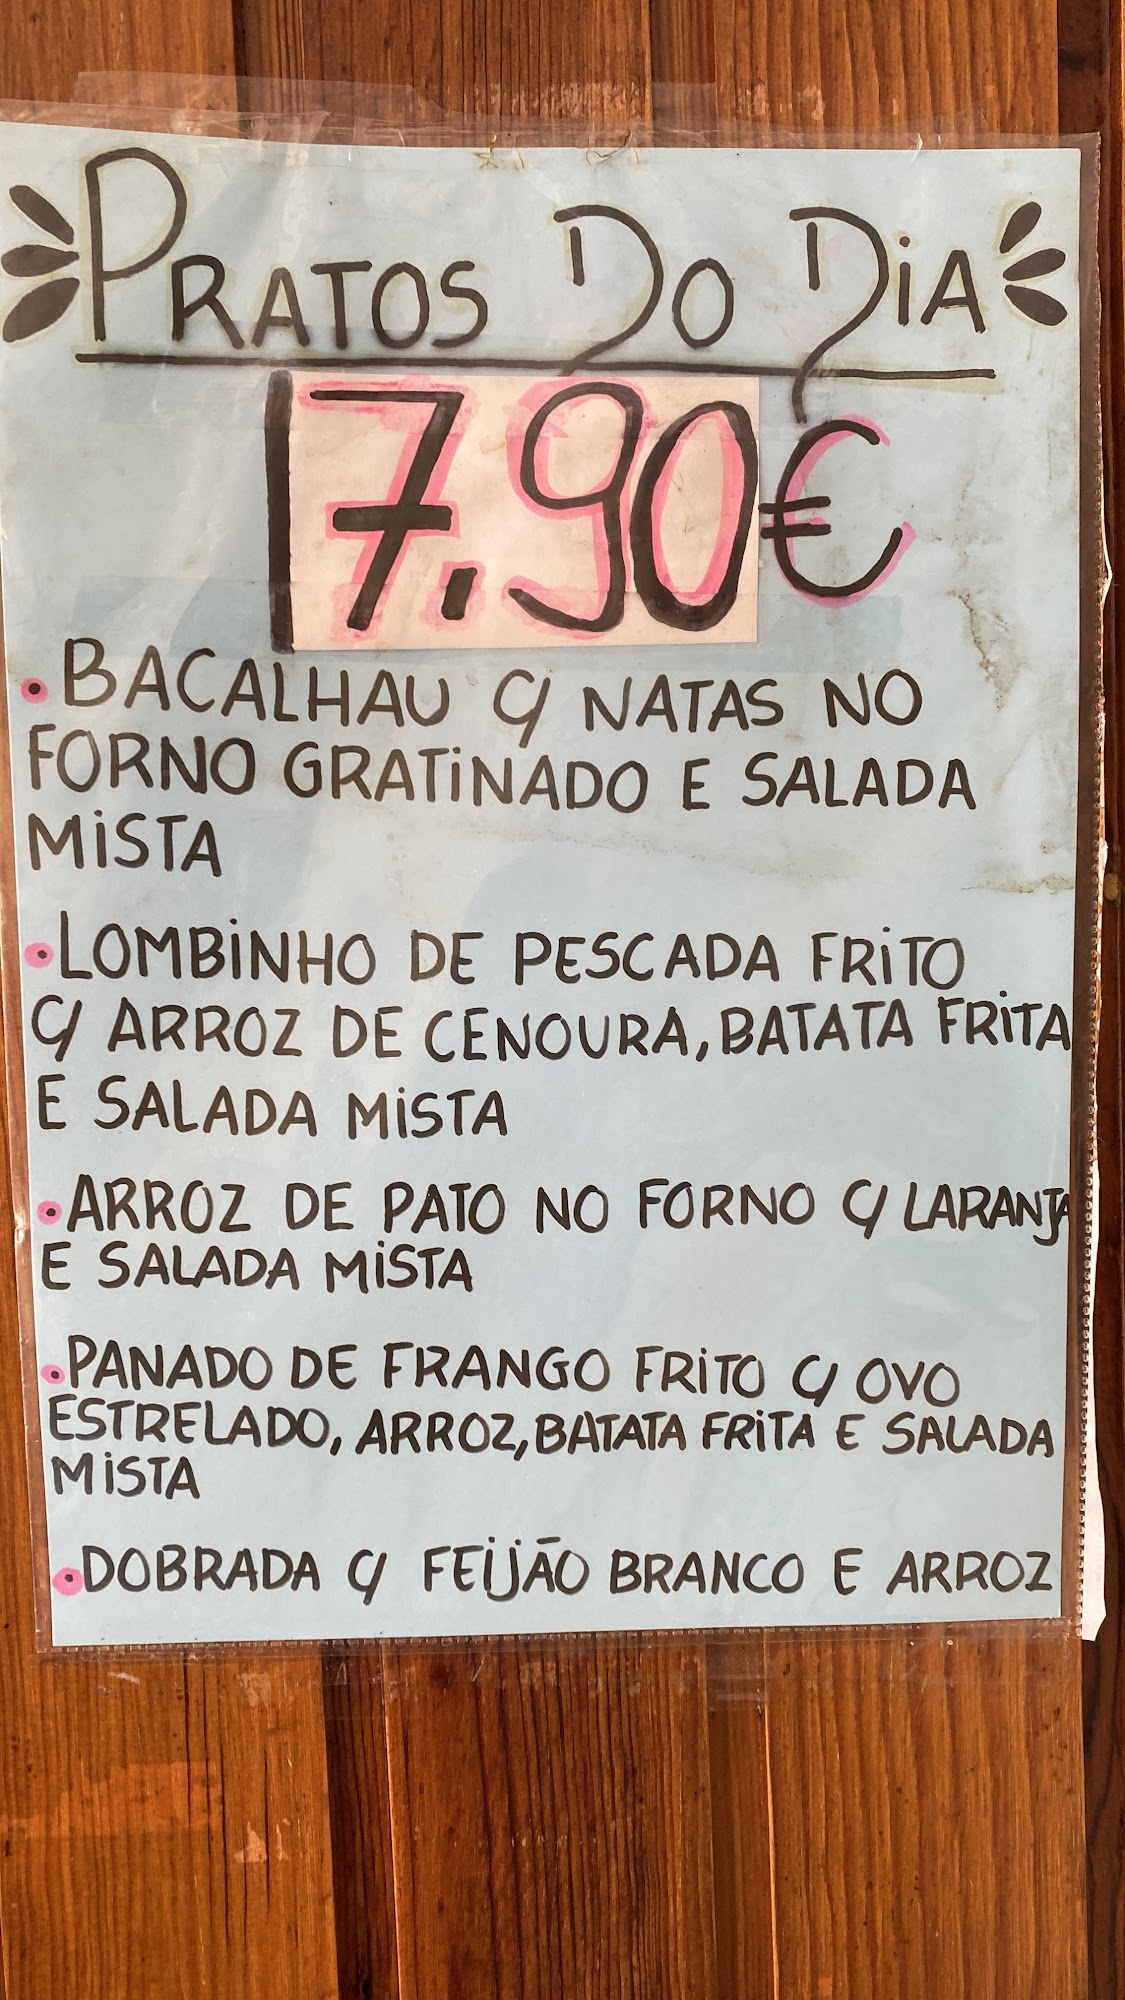 PRATOS DO DIA
7.90€
• BACALHAU C/ NATAS NO
FORNO GRATINADO E SALADA
MISTA
• LOMBINHO DE PESCADA FRITO
C/ ARROZ DE CENOURA, BATATA FRITA
E SALADA MISTA
• ARROZ DE PATO NO FORNO C/ LARANJA
E SALADA MISTA
• PANADO DE FRANGO FRITO C/ OVO
ESTRELADO, ARROZ, BATATA FRITA E SALADA
MISTA
• DOBRADA C/ FEIJÃO BRANCO E ARROZ